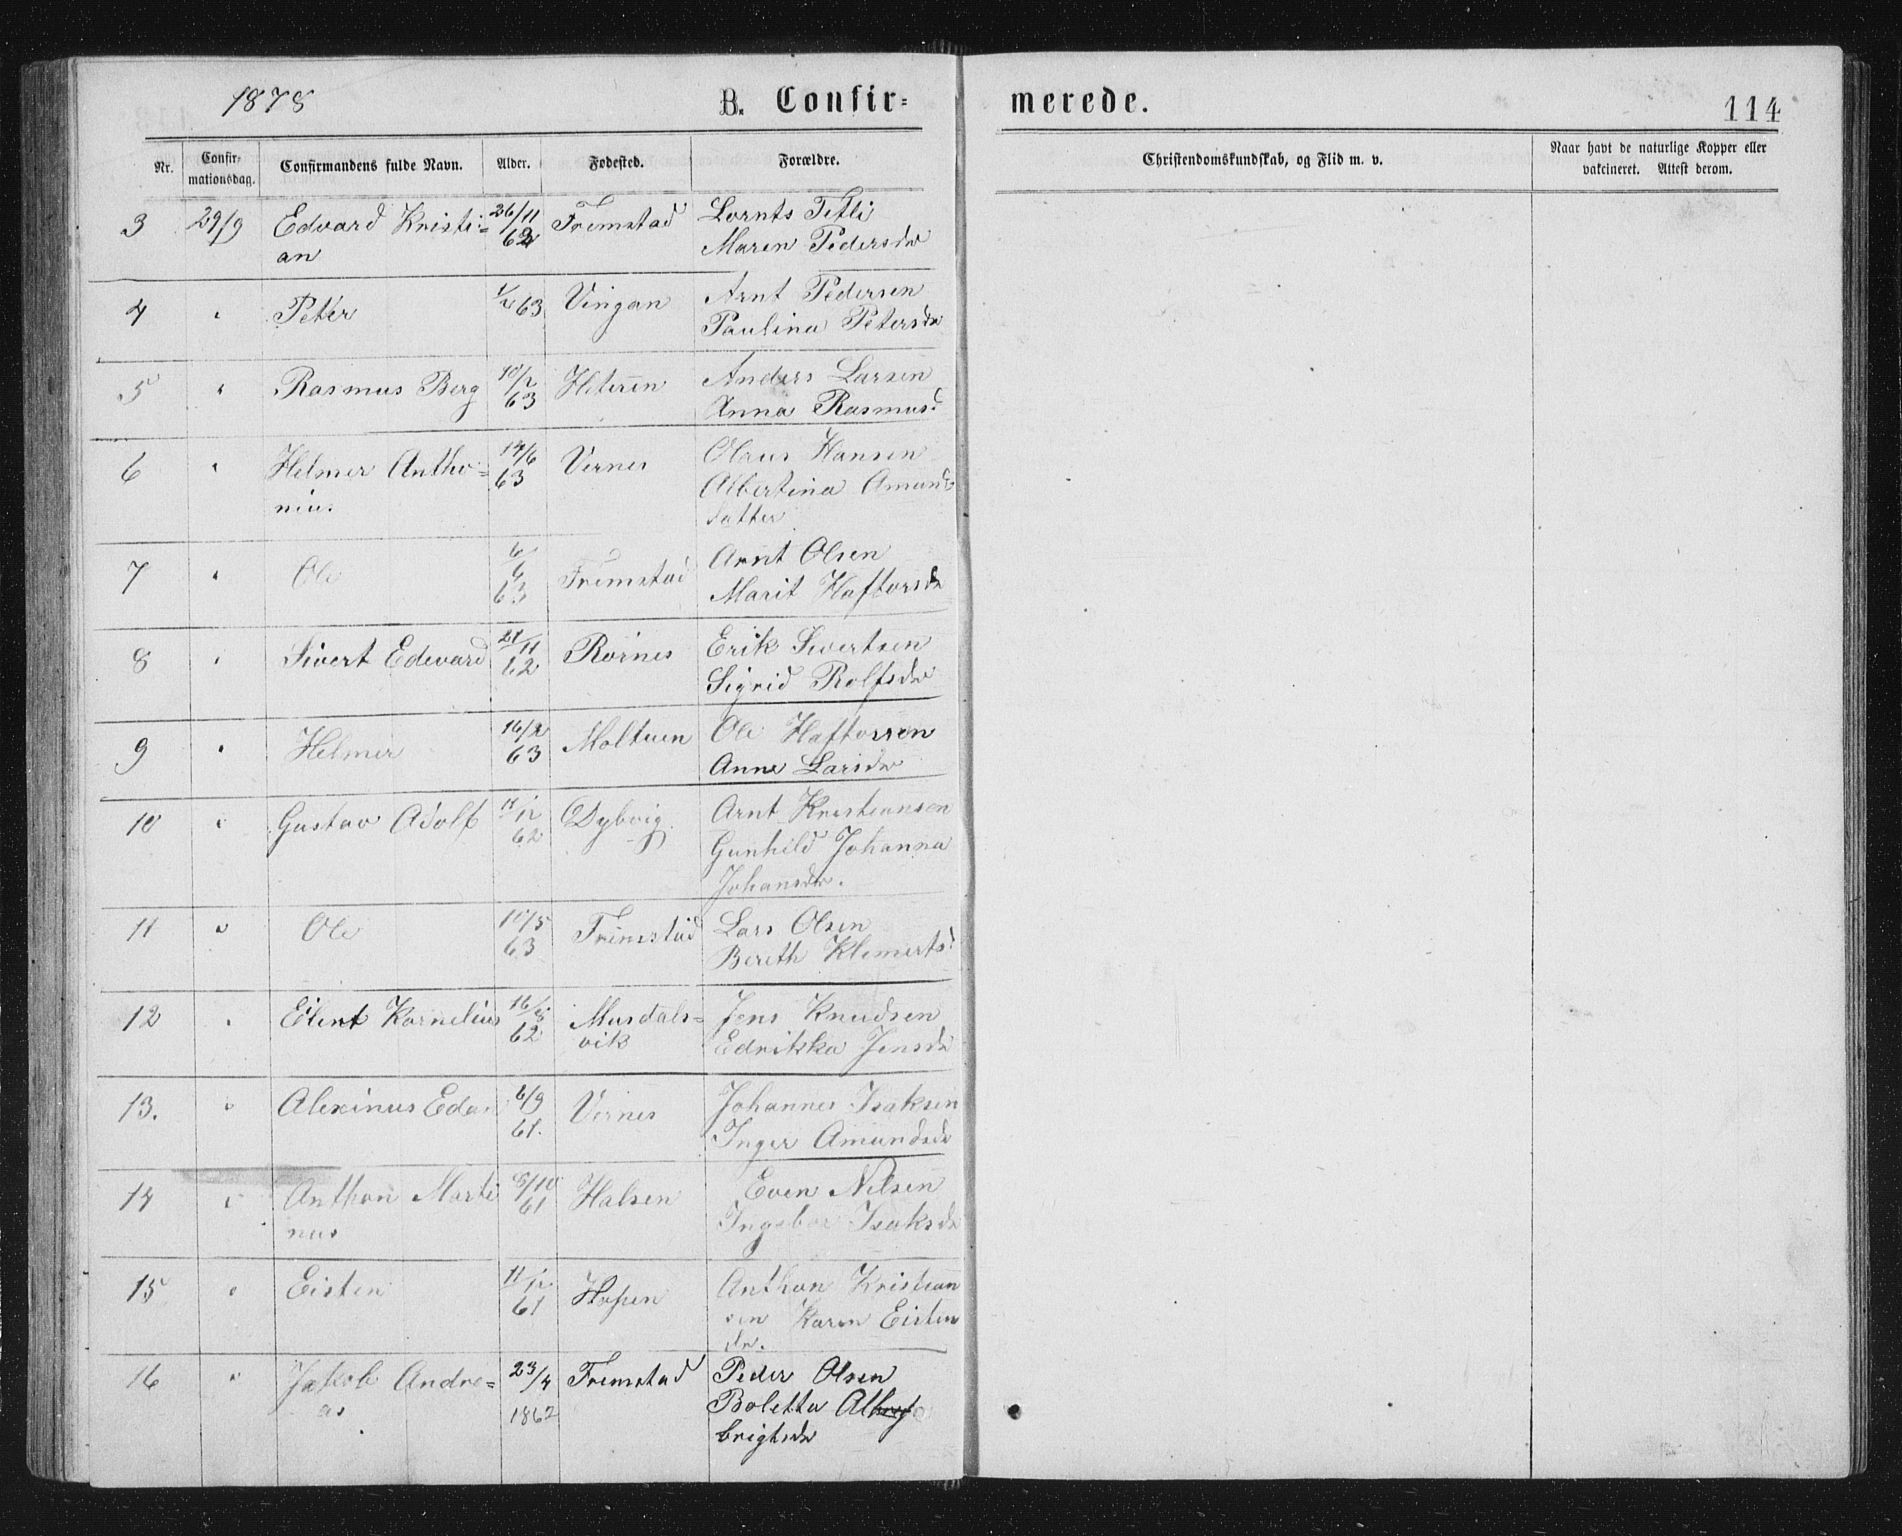 1878 B. Confir= merede. 114
Nr. Confir-mationsdag. Confirmandens fulde Navn. Alder. Fødested. Forældre. Christendomskundskab, og Flid m. v. Naar havt de naturlige Kopper eller vakcineret. Attest derom.
3 29/9 Edvard Kristi= 26/11 Fremstad Lornts Tetli
an 62 Maren Pedersdr
4 " Peter 1/2 63 Vingan Arnt Pedersen
Paulina Petersdr
5 " Rasmus Berg 10/2 Anders Larsen
63 Anna Rasmusd
6 " Helmer Antho= 14/6 Vernes Olaus Hansen
niu. 63 Albertina Amund
datter
7 " Ole 6/6 Fremstad Arnt Olsen
63 Marit Haftorsdr
8 " Sivert Edevard 21/11 Rørnes Erik Sivertsen
62 Sigrid Rolfsdr
9 " Helmer 16/2 Moltuen Ole Haftorsen
63 Anne Larsdr
10 " Gustav Adolf 11/12 Dybvig Arnt Kristiansen
62 Gunhild Johanna
Johansdr.
11 " Ole 10/5 Fremstad Lars Olsen
63 Bereth Klemertsd
12 " Elent Kornelius 16/8 Musdals= Jens Knudsen
62 vik Edrikka Jensdr
13. " Alexinus Edan 6/9 Vernes Johannes Isaksen
61. Inger Amundsdr
14 " Anthon Marti 8/10 Halsen Even Nilsen
nus 61 Ingebor Isaksdr
15 " Eisten 11/12 Hopen Anthon Kristian
61 sen Karen Eisten
dr.
16 " Jakob Andre= 23/4 Fremstad Peder Olsen
as 1862 Boletta Al
brigtsdr